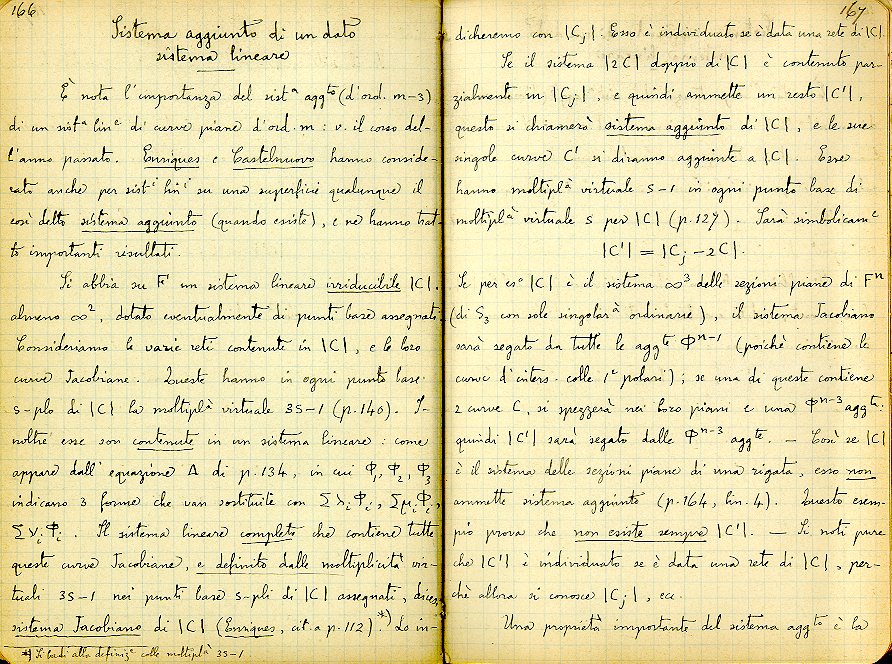 166
Sistema aggiunto di un dato
sistema lineare
È nota l'importanza del sist.ª aggto (d'ord. m-3)
di un sistª linᵉ di curve piane d'ord. m: v. il corso del-
l'anno passato. Enriques e Castelnuovo hanno conside-
rato anche per sistⁱ linⁱ su una superficie qualunque il
così detto sistema aggiunto (quando esiste), e ne hanno trat-
to importanti risultati.
Si abbia su F un sistema lineare irriducibile |C|,
almeno ∞², dotato eventualmente di punti base assegnati.
Consideriamo le varie reti contenute in |C|, e le loro
curve Jacobiane. Queste hanno in ogni punto base
s-plo di |C| la moltiplà virtuale 3s-1 (p. 140). I-
noltre esse son contenute in un sistema lineare: come
appare dall'equazione Δ di p. 134, in cui Φ₁, Φ₂, Φ₃
indicano 3 forme che van sostituite con Σλᵢφᵢ, Σμᵢφᵢ,
Σνᵢφᵢ. Il sistema lineare completo che contiene tutte
queste curve Jacobiane, e definito dalle moltiplicità vir-
tuali 3s-1 nei punti base s-pli di |C| assegnati, dicesi
sistema Jacobiano di |C| (Enriques, cit. a p. 112).*) Lo in-
*) Si badi alla definizᵉ colle moltiplà 3s-1.
167
dicheremo con |Cⱼ|. Esso è individuato se è data una rete di |C|.
Se il sistema |2C| doppio di |C| è contenuto par-
zialmente in |Cⱼ|, e quindi ammette un resto |C'|,
questo si chiamerà sistema aggiunto di |C|, e le sue
singole curve C' si diranno aggiunte a |C|. Esse
hanno moltiplà virtuale s-1 in ogni punto base di
moltiplà virtuale s per |C| (p. 127). Sarà simbolicamᵉ
|C'| = |Cⱼ - 2C|.
Se per esº |C| è il sistema ∞³ delle sezioni piane di Fⁿ
(di S₃ con sole singolarà ordinarie), il sistema Jacobiano
sarà segato da tutte le aggte Φⁿ⁻¹ (poichè contiene le
curve d'inters. colle 1ᵉ polari); se una di queste contiene
2 curve C, si spezzerà nei loro piani e una Φⁿ⁻³ aggta:
quindi |C'| sarà segato dalle Φⁿ⁻³ aggte. — Così se |C|
è il sistema delle sezioni piane di una rigata, esso non
ammette sistema aggiunto (p. 164, lin. 4). Questo esem-
pio prova che non esiste sempre |C'|. — Si noti pure
che |C'| è individuato se è data una rete di |C|, per-
chè allora si conosce |Cⱼ|, ecc.
Una proprietà importante del sistema aggto è la